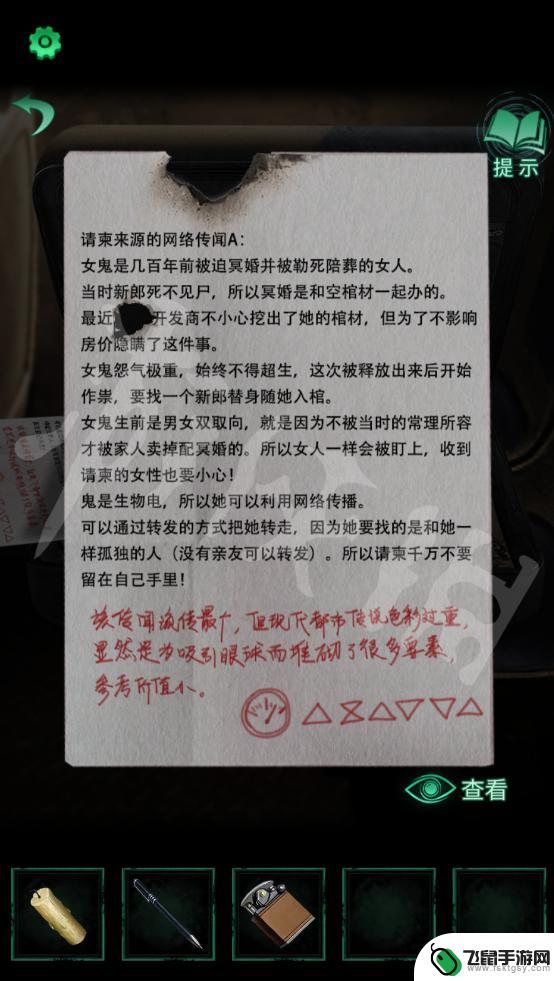 提示
请柬来源的网络传闻A：
女鬼是几百年前被迫冥婚并被勒死陪葬的女人。
当时新郎死不见尸，所以冥婚是和空棺材一起办的。
最近 开发商不小心挖出了她的棺材，但为了不影响
房价隐瞒了这件事。
女鬼怨气极重，始终不得超生，这次被释放出来后开始
作祟，要找一个新郎替身随她入棺。
女鬼生前是男女双取向，就是因为不被当时的常理所容
才被家人卖掉配冥婚的。所以女人一样会被盯上，收到
请柬的女性也要小心！
鬼是生物电，所以她可以利用网络传播。
可以通过转发的方式把她转走，因为她要找的是和她一
样孤独的人（没有亲友可以转发）。所以请柬千万不要
留在自己手里！
该传闻流传最广，但现代都市传说色彩过重，
显然是为吸引眼球而堆砌了很多要素，
参考价值小。
查看
飞鼠手游网
www.fsktgsy.com